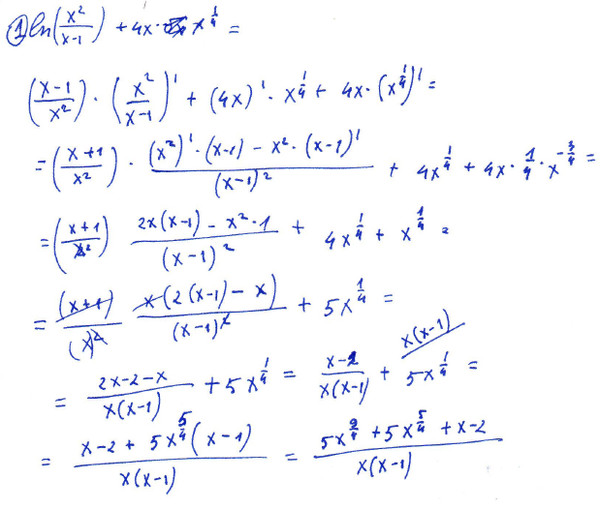 ① ln(x²/(x-1)) + 4x · x^(1/4) =
((x-1)/x²) · (x²/(x-1))' + (4x)' · x^(1/4) + 4x · (x^(1/4))' =
= ((x+1)/x²) · ((x²)' · (x-1) - x² · (x-1)')/(x-1)² + 4x^(1/4) + 4x · 1/4 · x^(-3/4) =
= ((x+1)/x²) (2x(x-1) - x² · 1)/(x-1)² + 4x^(1/4) + x^(1/4) =
= (x+1)/(x)² · x(2(x-1) - x)/(x-1)² + 5x^(1/4) =
= (2x-2-x)/(x(x-1)) + 5x^(1/4) = (x-2)/(x(x-1)) + 5x^(1/4) x(x-1) =
= (x-2 + 5x^(5/4)(x-1))/(x(x-1)) = (5x^(9/4) + 5x^(5/4) + x-2)/(x(x-1))